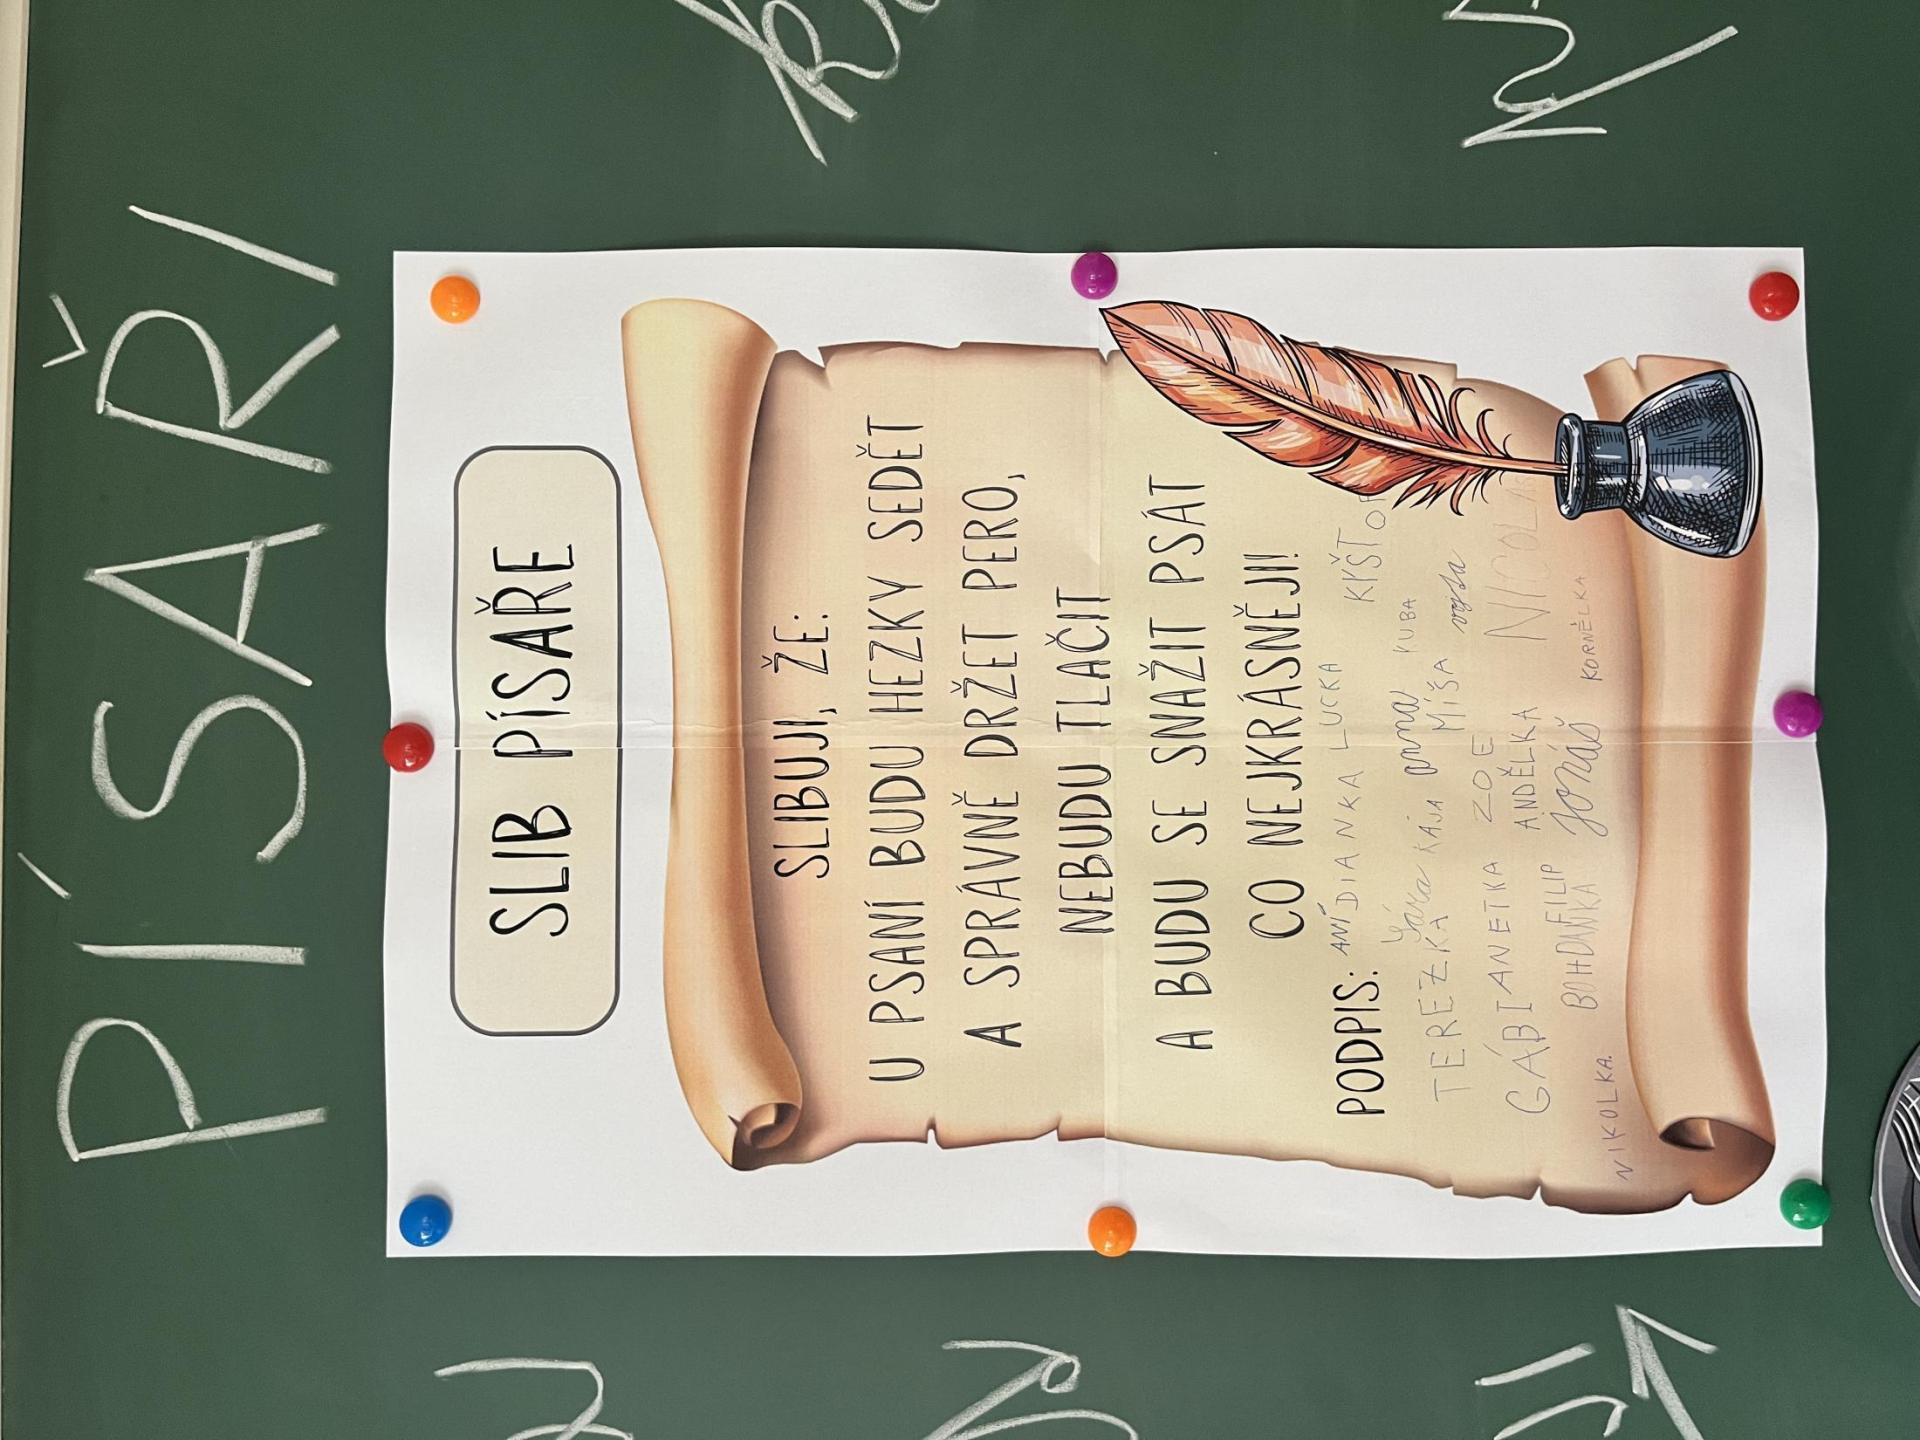 PÍSAŘI
SLIB PÍSAŘE
SLIBUJI, ŽE:
U PSANÍ BUDU HEZKY SEDĚT
A SPRÁVNĚ DRŽET PERO,
NEBUDU TLAČIT
A BUDU SE SNAŽIT PSÁT
CO NEJKRÁSNĚJI!
PODPIS: ANÍ DIANKA LUCKA KYŠTOF
Sára anna KUBA
TEREZKA KÁJA MÍŠA vojta
GÁBI ANETKA ZOE
ANDĚLKA NICOLAS
BOHDANKA FILIP Jonáš KORNĚLKA
NIKOLKA.